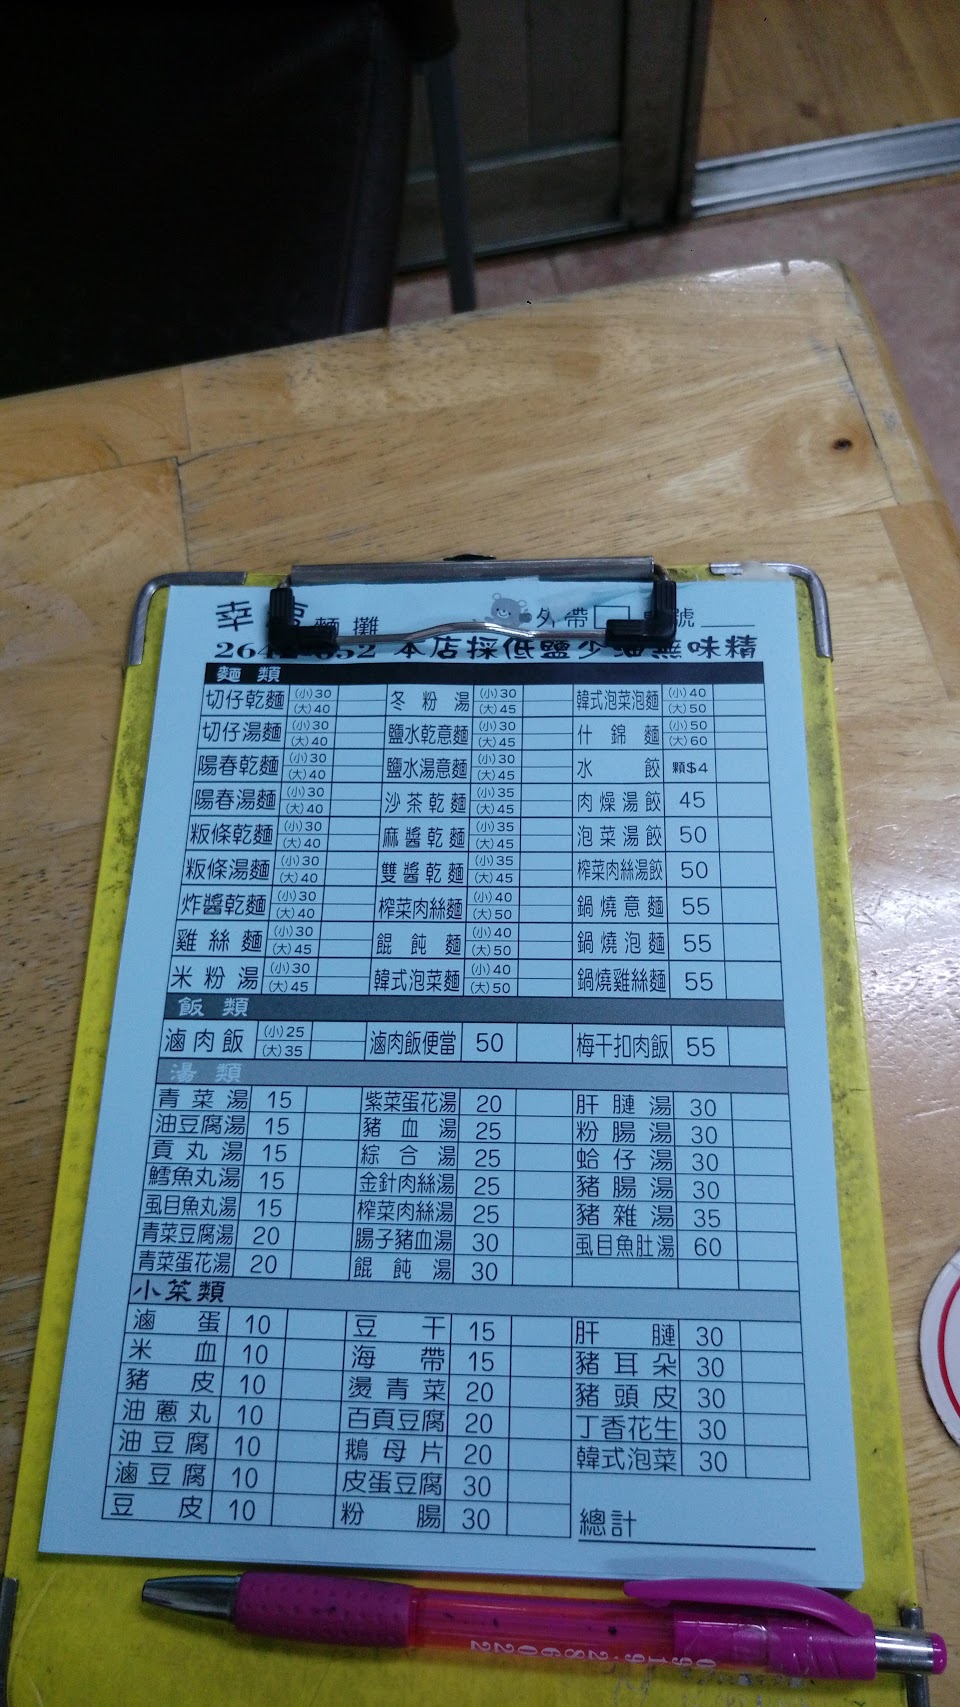 幸 麵攤 外帶 號
本店採低鹽少油無味精
麵類
切仔乾麵 (小)30 (大)40 冬粉湯 (小)30 (大)45 韓式泡菜泡麵 (小)40 (大)50
切仔湯麵 (小)30 (大)40 鹽水乾意麵 (小)30 (大)45 什錦麵 (小)50 (大)60
陽春乾麵 (小)30 (大)40 鹽水湯意麵 (小)30 (大)45 水餃 顆$4
陽春湯麵 (小)30 (大)40 沙茶乾麵 (小)35 (大)45 肉燥湯餃 45
粄條乾麵 (小)30 (大)40 麻醬乾麵 (小)35 (大)45 泡菜湯餃 50
粄條湯麵 (小)30 (大)40 雙醬乾麵 (小)35 (大)45 榨菜肉絲湯餃 50
炸醬乾麵 (小)30 (大)40 榨菜肉絲麵 (小)40 (大)50 鍋燒意麵 55
雞絲麵 (小)30 (大)45 餛飩麵 (小)40 (大)50 鍋燒泡麵 55
米粉湯 (小)30 (大)45 韓式泡菜麵 (小)40 (大)50 鍋燒雞絲麵 55
飯類
滷肉飯 (小)25 (大)35 滷肉飯便當 50 梅干扣肉飯 55
湯類
青菜湯 15 紫菜蛋花湯 20 肝腱湯 30
油豆腐湯 15 豬血湯 25 粉腸湯 30
貢丸湯 15 綜合湯 25 蛤仔湯 30
鱈魚丸湯 15 金針肉絲湯 25 豬腸湯 30
虱目魚丸湯 15 榨菜肉絲湯 25 豬雜湯 35
青菜豆腐湯 20 腸子豬血湯 30 虱目魚肚湯 60
青菜蛋花湯 20 餛飩湯 30
小菜類
滷蛋 10 豆干 15 肝腱 30
米血 10 海帶 15 豬耳朵 30
豬皮 10 燙青菜 20 豬頭皮 30
油蔥丸 10 百頁豆腐 20 丁香花生 30
油豆腐 10 鵝母片 20 韓式泡菜 30
滷豆腐 10 皮蛋豆腐 30
豆皮 10 粉腸 30
總計